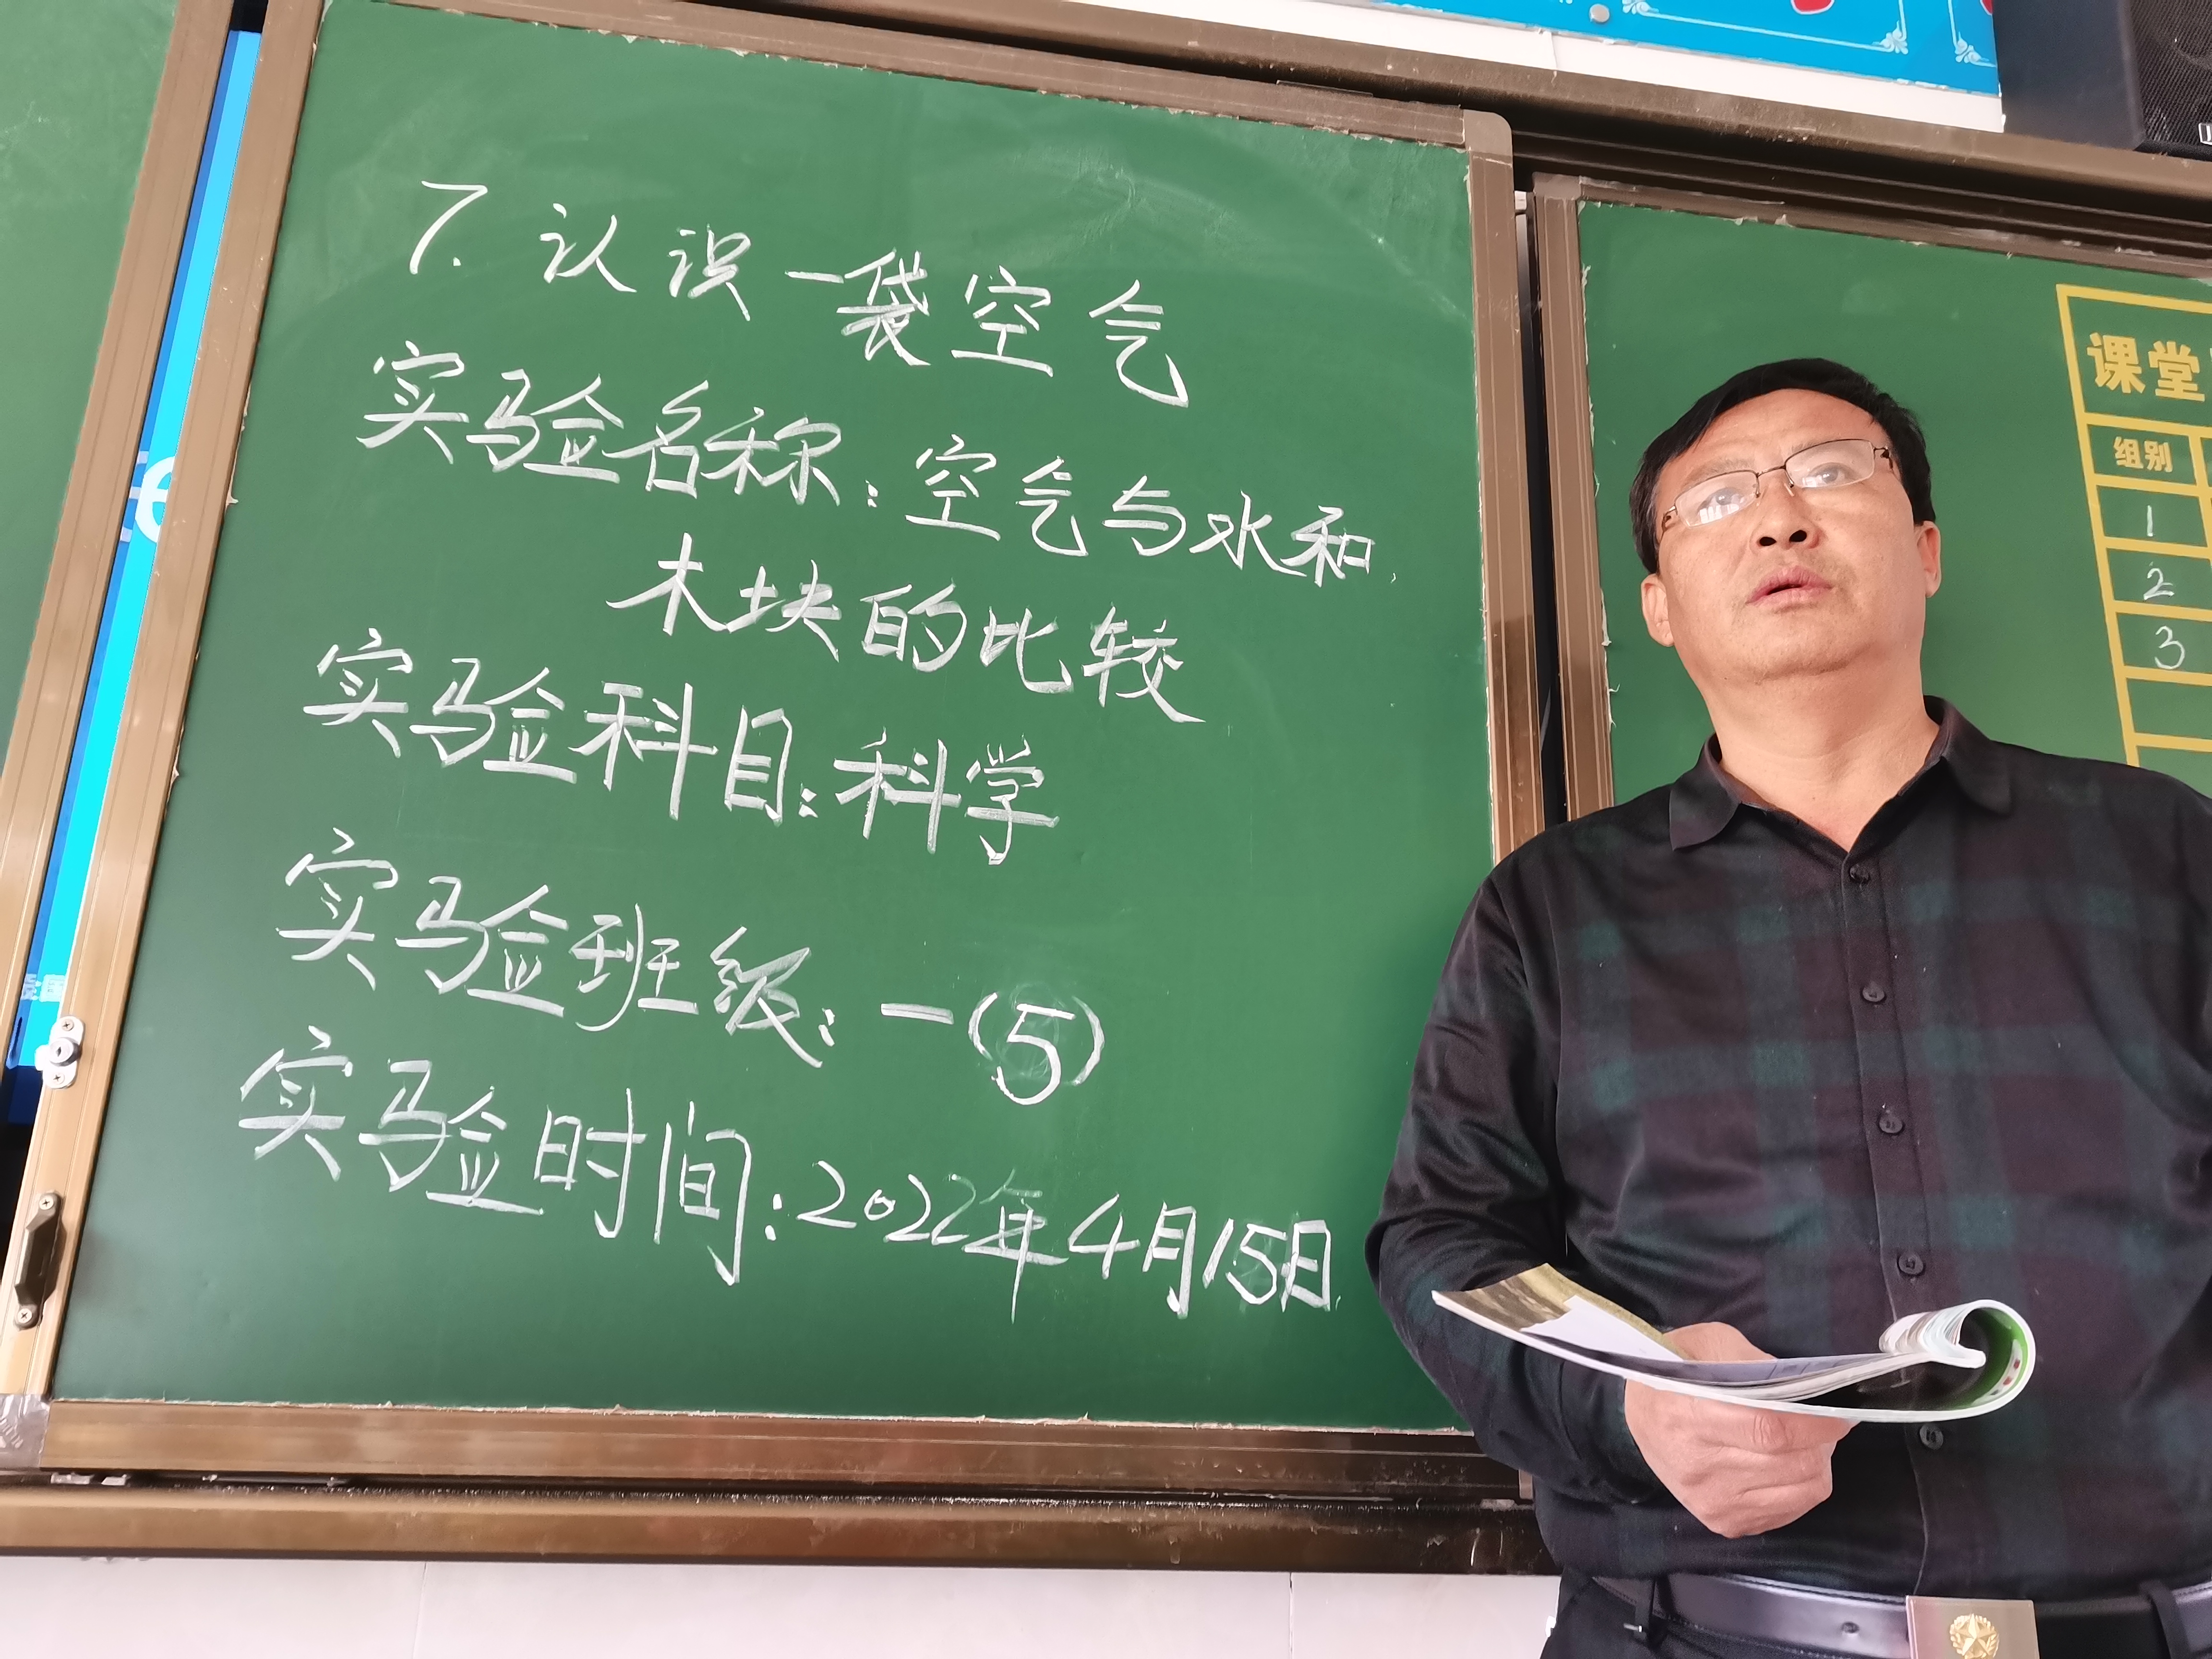 7. 认识一袋空气
实验名称：空气与水和
木块的比较
实验科目：科学
实验班级：一（5）
实验时间：2022年4月15日
课堂
组别
1
2
3